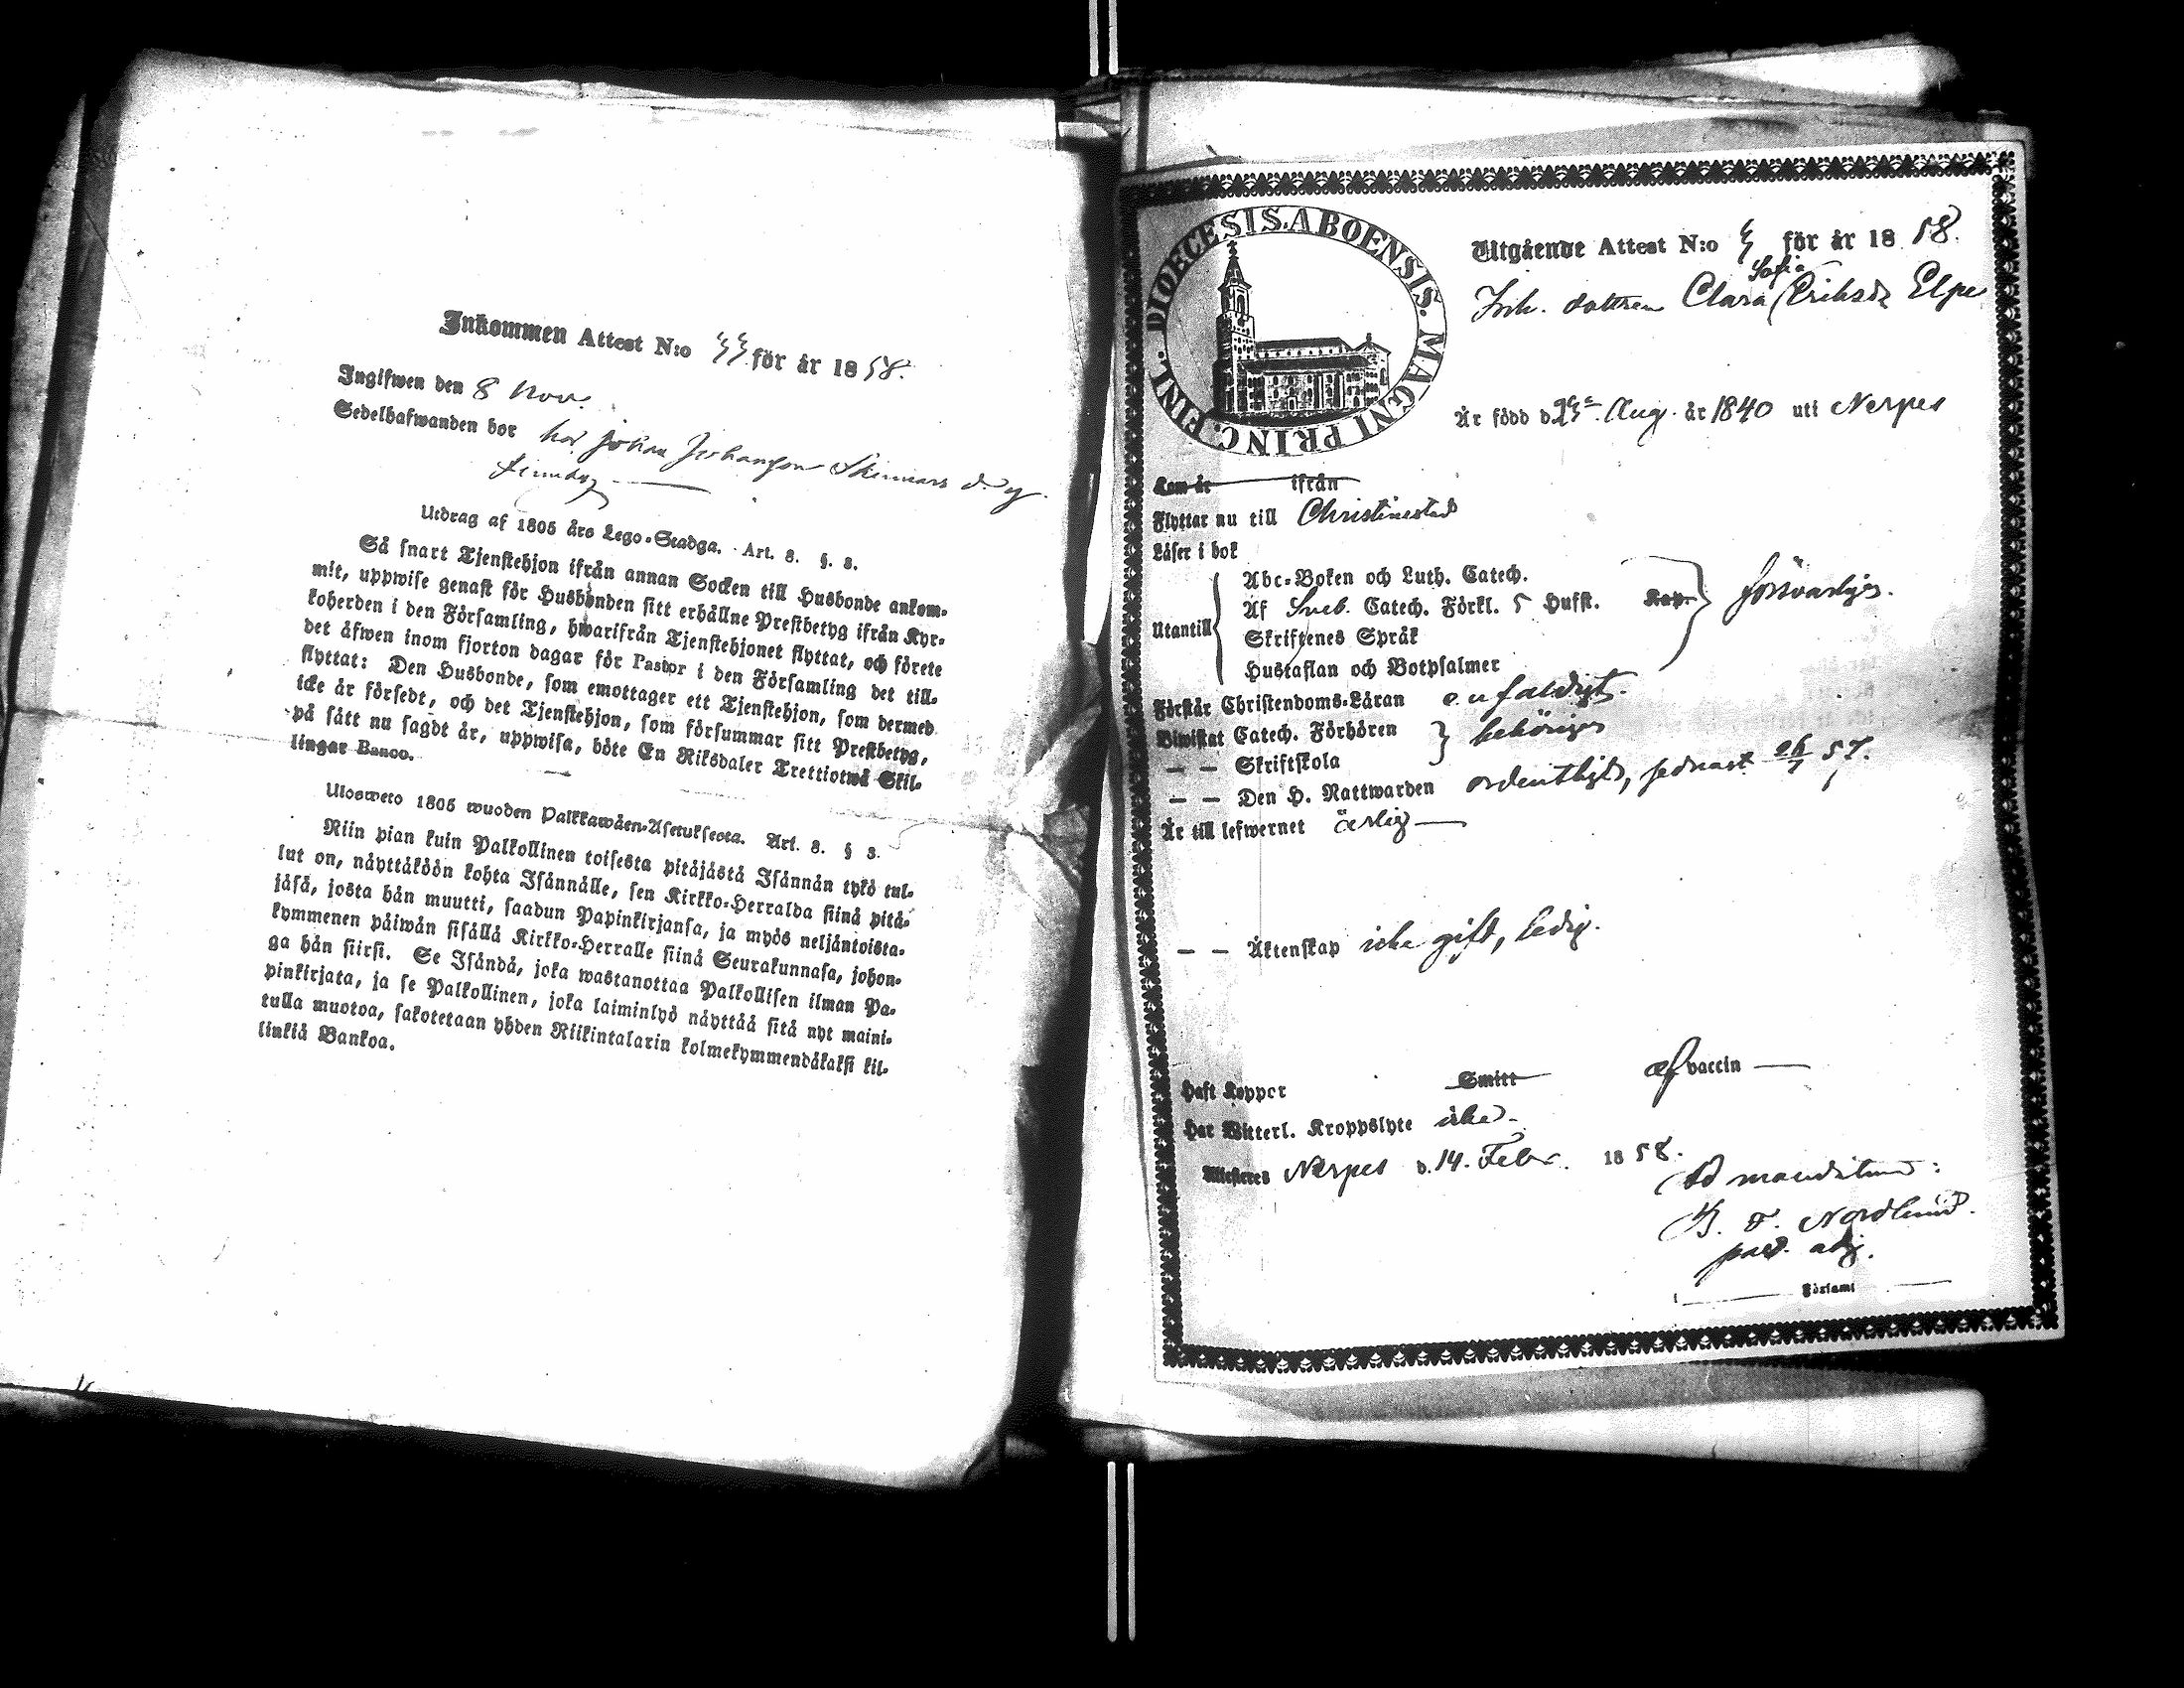 Inkommen Attest N:o 33 för år 1858.
Ingifwen den 8 Nov.
Sedelhafwanden bor hos Johan Johansson
Utdrag af 1805 års Lego-Stadga. Art. 8. §. 3.
Så snart Tjenstehjon ifrån annan Socken till Husbonde ankom-
mit, uppwise genast för Husbonden sitt erhållne Prestbetyg ifrån Kyr-
koherden i den Församling, hwarifrån Tjenstehjonet flyttat, och förete
det äfwen inom fjorton dagar för Pastor i den Församling det till-
flyttat: Den Husbonde, som emottager ett Tjenstehjon, som dermed
icke är försedt, och det Tjenstehjon, som försummar sitt Prestbetyg,
på sätt nu sagdt är, uppwisa, böte En Riksdaler Trettiotwå Skil-
lingar Banco.
Ulosweto 1805 wuoden Palkkawäen-Asetuksesta. Art. 8. § 3.
Niin pian kuin Palkollinen toisesta pitäjästä Isännän tykö tul-
lut on, näyttäköön kohta Isännälle, sen Kirkko-Herralda siinä pitä-
jäsä, josta hän muutti, saadun Papinkirjansa, ja myös neljäntoista-
kymmenen päiwän sisällä Kirkko-Herralle siinä Seurakunnasa, johon-
ga hän siirsi. Se Isändä, joka wastanottaa Palkollisen ilman Pa-
pinkirjata, ja se Palkollinen, joka laiminlyö näyttää sitä nyt maini-
tulla muotoa, sakotetaan yhden Riikintalarin kolmekymmendäkaksi kil-
linkiä Bankoa.
DIOECESIS. ABOENSIS. MAGNI PRINC. FINL.
Utgående Attest N:o 3 för år 1858.
Sofia
Inh. dottren Clara Eriksdr Elpe
Är född d. Aug. år 1840 uti Nerpes
Kom år ifrån
Flyttar nu till Christinestad
Läser i bok
Utantill
Abc-Boken och Luth. Catech.
Af Sveb. Catech. Förkl. 5 Hufst. Kap. försvarligen.
Skriftenes Språk
Hustaflan och Botpsalmer
Förstår Christendoms-Läran enfaldigt.
Biwistat Catech. Förhören behörigen
— — Skriftskola
— — Den H. Nattwarden ordentligt, sednast 26/7 57.
Är till lefwernet ärlig
— — Äktenskap icke gift, ledig.
Haft Koppor Smitt af vaccin
Har Witterl. Kroppslyte icke
Attesteres Nerpes d. 14. Febr. 1858.
Ad mandatum:
B. F. Nordlund.
past. adj.
Församl